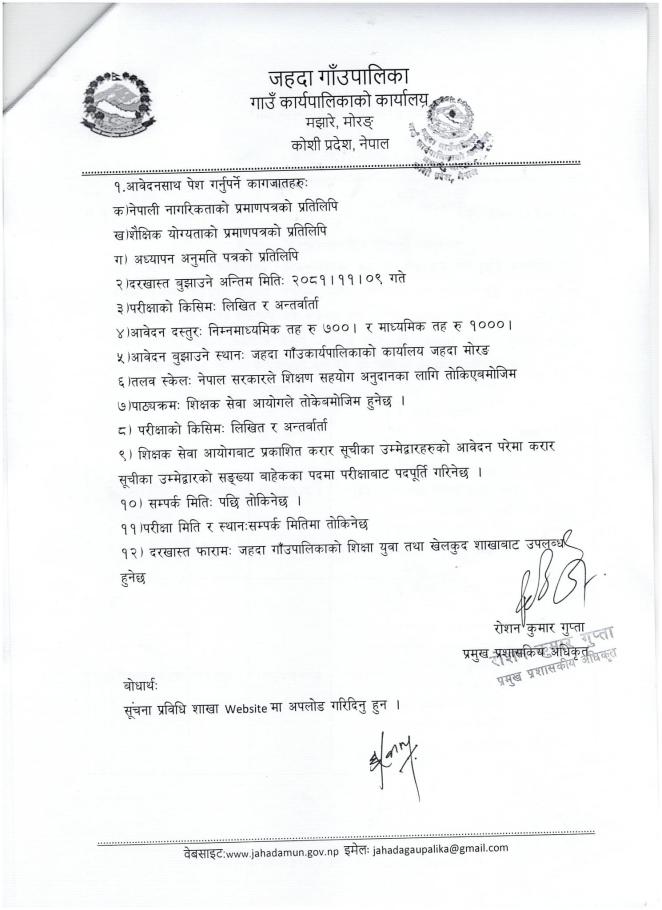 जहदा गाँउपालिका
गाउँ कार्यपालिकाको कार्यालय
मझारे, मोरङ्
कोशी प्रदेश, नेपाल
१.आवेदनसाथ पेश गर्नुपर्ने कागजातहरुः
क)नेपाली नागरिकताको प्रमाणपत्रको प्रतिलिपि
ख)शैक्षिक योग्यताको प्रमाणपत्रको प्रतिलिपि
ग) अध्यापन अनुमति पत्रको प्रतिलिपि
२)दरखास्त बुझाउने अन्तिम मितिः २०८१।११।०९ गते
३)परीक्षाको किसिमः लिखित र अन्तर्वार्ता
४)आवेदन दस्तुरः निम्नमाध्यमिक तह रु ७००। र माध्यमिक तह रु १०००।
५)आवेदन बुझाउने स्थानः जहदा गाँउकार्यपालिकाको कार्यालय जहदा मोरङ
६)तलव स्केलः नेपाल सरकारले शिक्षण सहयोग अनुदानका लागि तोकिएबमोजिम
७)पाठ्यक्रमः शिक्षक सेवा आयोगले तोकेबमोजिम हुनेछ ।
८) परीक्षाको किसिमः लिखित र अन्तर्वार्ता
९) शिक्षक सेवा आयोगबाट प्रकाशित करार सूचीका उम्मेद्वारहरुको आवेदन परेमा करार
सूचीका उम्मेद्वारको सङ्ख्या बाहेकका पदमा परीक्षाबाट पदपूर्ति गरिनेछ ।
१०) सम्पर्क मितिः पछि तोकिनेछ ।
११)परीक्षा मिति र स्थानःसम्पर्क मितिमा तोकिनेछ
१२) दरखास्त फारामः जहदा गाँउपालिकाको शिक्षा युवा तथा खेलकुद शाखाबाट उपलब्ध
हुनेछ
रोशन कुमार गुप्ता
प्रमुख प्रशासकिय अधिकृत
रोशन कुमार गुप्ता
प्रमुख प्रशासकीय अधिकृत
बोधार्थः
सूंचना प्रविधि शाखा Website मा अपलोड गरिदिनु हुन ।
वेबसाइट:www.jahadamun.gov.np इमेलः jahadagaupalika@gmail.com